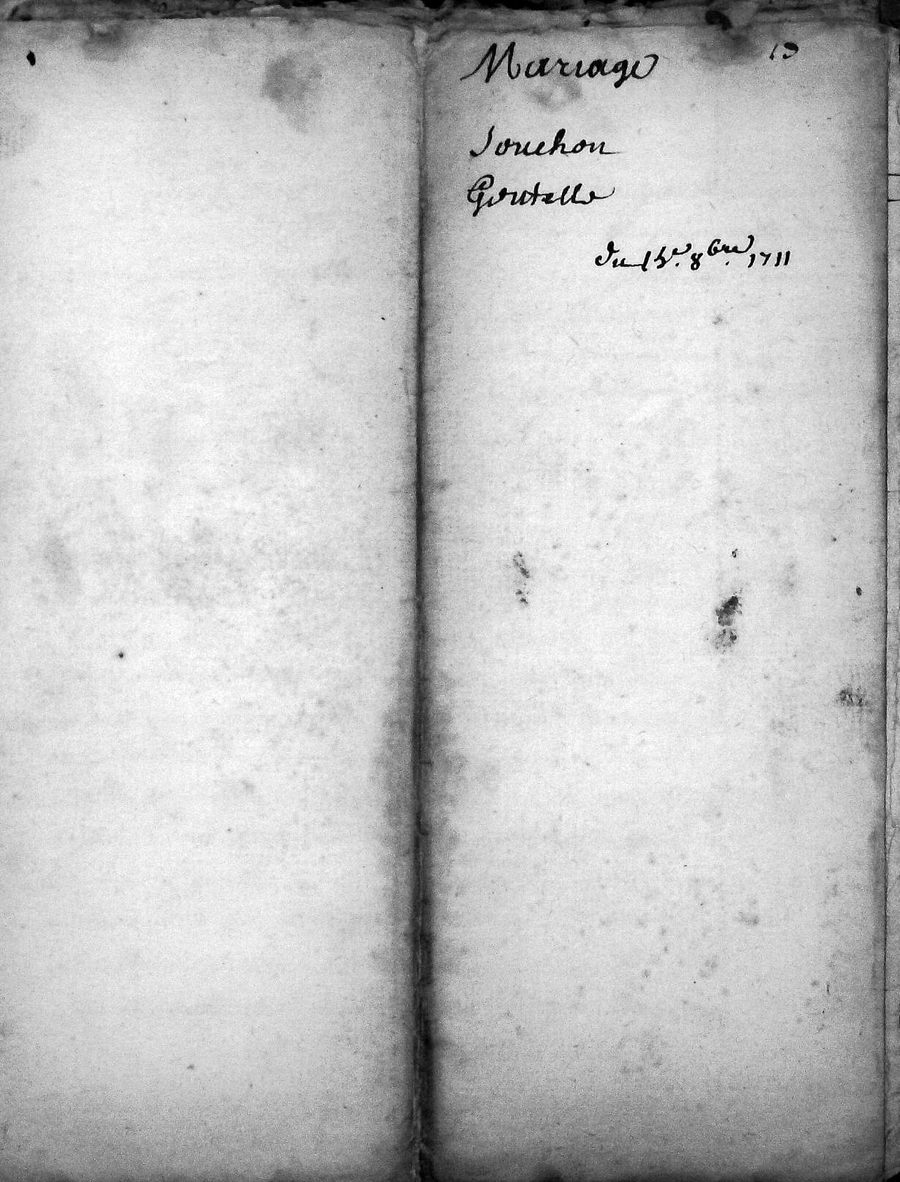 Mariage
Souchon
Goutelle
Du 15e. 8bre. 1711